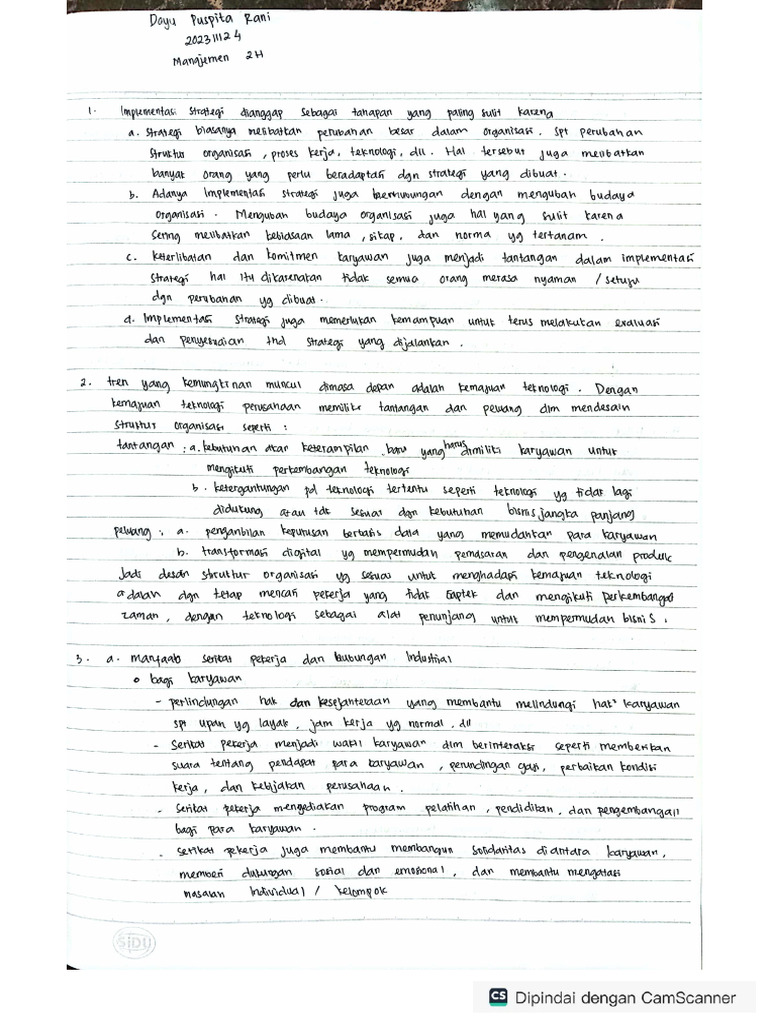 Dayu Puspita Rani
202311124
Manajemen 2H
1. Implementasi strategi dianggap sebagai tahapan yang paling sulit karena
a. Strategi biasanya melibatkan perubahan besar dalam organisasi. Spt perubahan
Struktur organisasi, proses kerja, teknologi, dll. Hal tersebut juga melibatkan
banyak orang yang perlu beradaptasi dgn strategi yang dibuat.
b. Adanya Implementasi strategi juga berhubungan dengan mengubah budaya
organisasi. Mengubah budaya organisasi juga hal yang sulit karena
Sering melibatkan kebiasaan lama, sikap, dan norma yg tertanam.
c. Keterlibatan dan komitmen karyawan juga menjadi tantangan dalam implementasi
Strategi hal itu dikarenakan tidak semua orang merasa nyaman / setuju
dgn perubahan yg dibuat.
d. Implementasi strategi juga memerlukan kemampuan untuk terus melakukan evaluasi
dan penyesuaian thd strategi yang dijalankan.
2. tren yang kemungkinan muncul dimasa depan adalah kemajuan teknologi. Dengan
kemajuan teknologi perusahaan memiliki tantangan dan peluang dlm mendesain
struktur organisasi seperti :
tantangan : a. kebutuhan akan keterampilan baru yang harus dimiliki karyawan untuk
mengikuti perkembangan teknologi
b. ketergantungan pd teknologi tertentu seperti teknologi yg tidak lagi
didukung atau tdk sesuai dgn kebutuhan bisnis jangka panjang
peluang : a. pengambilan keputusan berbasis data yang memudahkan para karyawan
b. transformasi digital yg mempermudah pemasaran dan pengenalan produk
Jadi desain struktur organisasi yg sesuai untuk menghadapi kemajuan teknologi
adalah dgn tetap mencari pekerja yang tidak gaptek dan mengikuti perkembangan
zaman, dengan teknologi sebagai alat penunjang untuk mempermudah bisnis.
3. a. manfaat serikat pekerja dan hubungan Industrial
o bagi karyawan
- perlindungan hak dan kesejahteraan yang membantu melindungi hak² karyawan
spt upah yg layak, jam kerja yg normal, dll
- Serikat pekerja menjadi wakil karyawan dlm berinteraksi seperti memberikan
suara tentang pendapat para karyawan, perundingan gaji, perbaikan kondisi
kerja, dan kebijakan perusahaan.
- Serikat pekerja mengediakan program pelatihan, pendidikan, dan pengembangan
bagi para karyawan.
- Serikat pekerja juga membantu membangun solidaritas diantara karyawan,
memberi dukungan sosial dan emosional, dan membantu mengatasi
masalah Individual / kelompok
SIDU
CS Dipindai dengan CamScanner